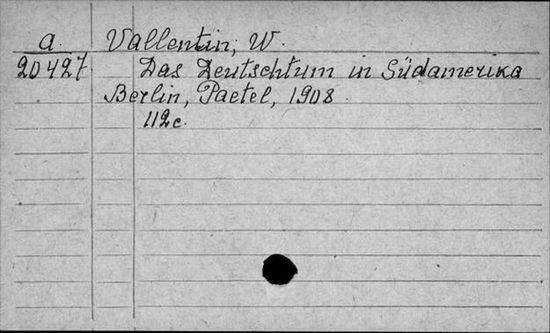 a. Vallentin, W.
20427. Das Deutschtum in Südamerika
Berlin, Paetel, 1908.
112c.